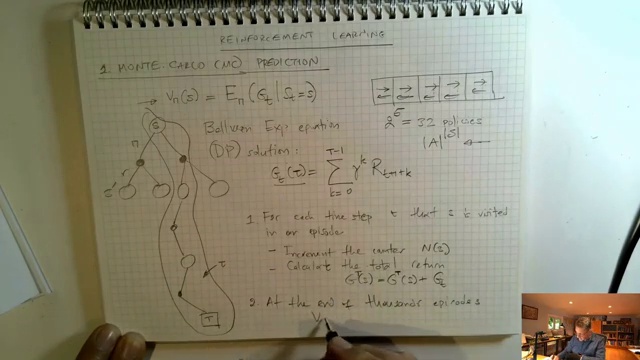 REINFORCEMENT LEARNING
1. MONTE-CARLO (MC) PREDICTION
→ Vπ(s) = Eπ(Gt | St=s)
2^5 = 32 policies
|A|^|S| ←
Bellman Exp equation
(DP) solution:
Gt(τ) = ∑ k=0 T-1 γ^k Rt+1+k
S
π
r
s'
τ
T
1 For each time step t that s is visited
in an episode
- Increment the counter N(s)
- Calculate the total return
G^T(s) = G^T(s) + Gt
2 At the end of thousands episodes
V